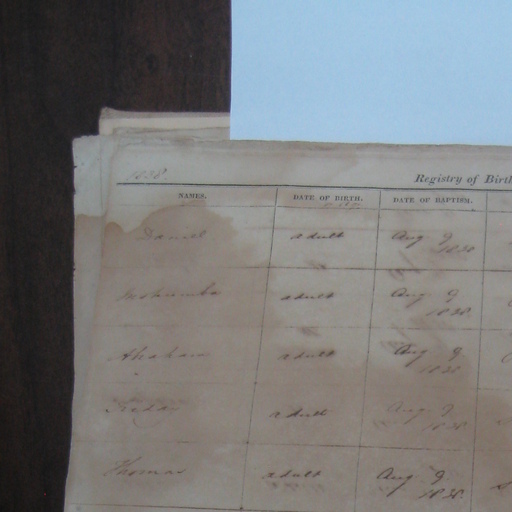 1838.
Registry of Birth
NAMES. DATE OF BIRTH. DATE OF BAPTISM.
Daniel adult Aug 9
1838
adult Aug 9
1838
Abraham adult Aug 9
1838
Friday adult Aug 9
1838
Thomas adult Aug 9
1838